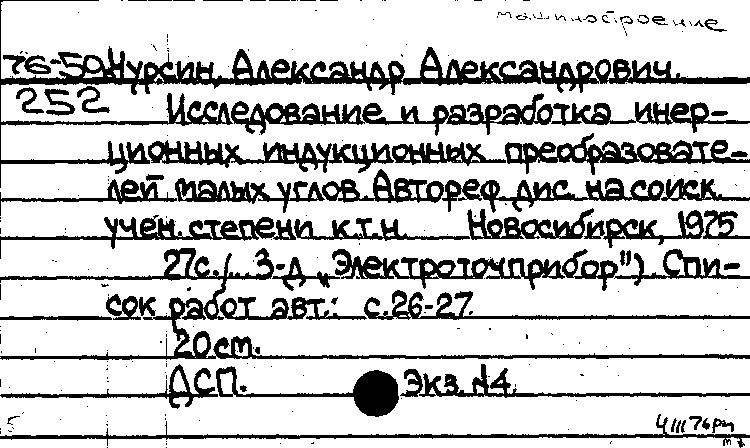 машиностроение
76-50 Нурсин, Александр Александрович.
252 Исследование и разработка инер-
ционных индукционных преобразовате-
лей малых углов. Автореф. дис. на соиск.
учен. степени к.т.н. Новосибирск, 1975
27с./... З-д „Электроточприбор"). Спи-
сок работ авт.: с.26-27.
20см.
ДСП. Экз. №4.
5 4 III 76